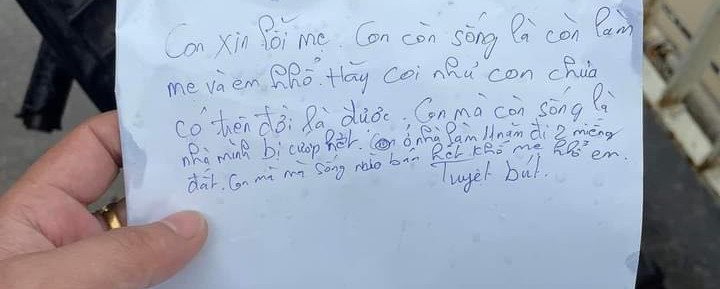 Con xin lỗi mẹ. Con còn sống là còn làm
mẹ và em khổ. Hãy coi như con chưa
có trên đời là được. Con mà còn sống là
nhà mình bị cướp hết. Con ở nhà làm 11 năm đi 2 miếng
đất. Con mà mà sống nữa bán hết khổ mẹ khổ em.
Tuyệt bút.